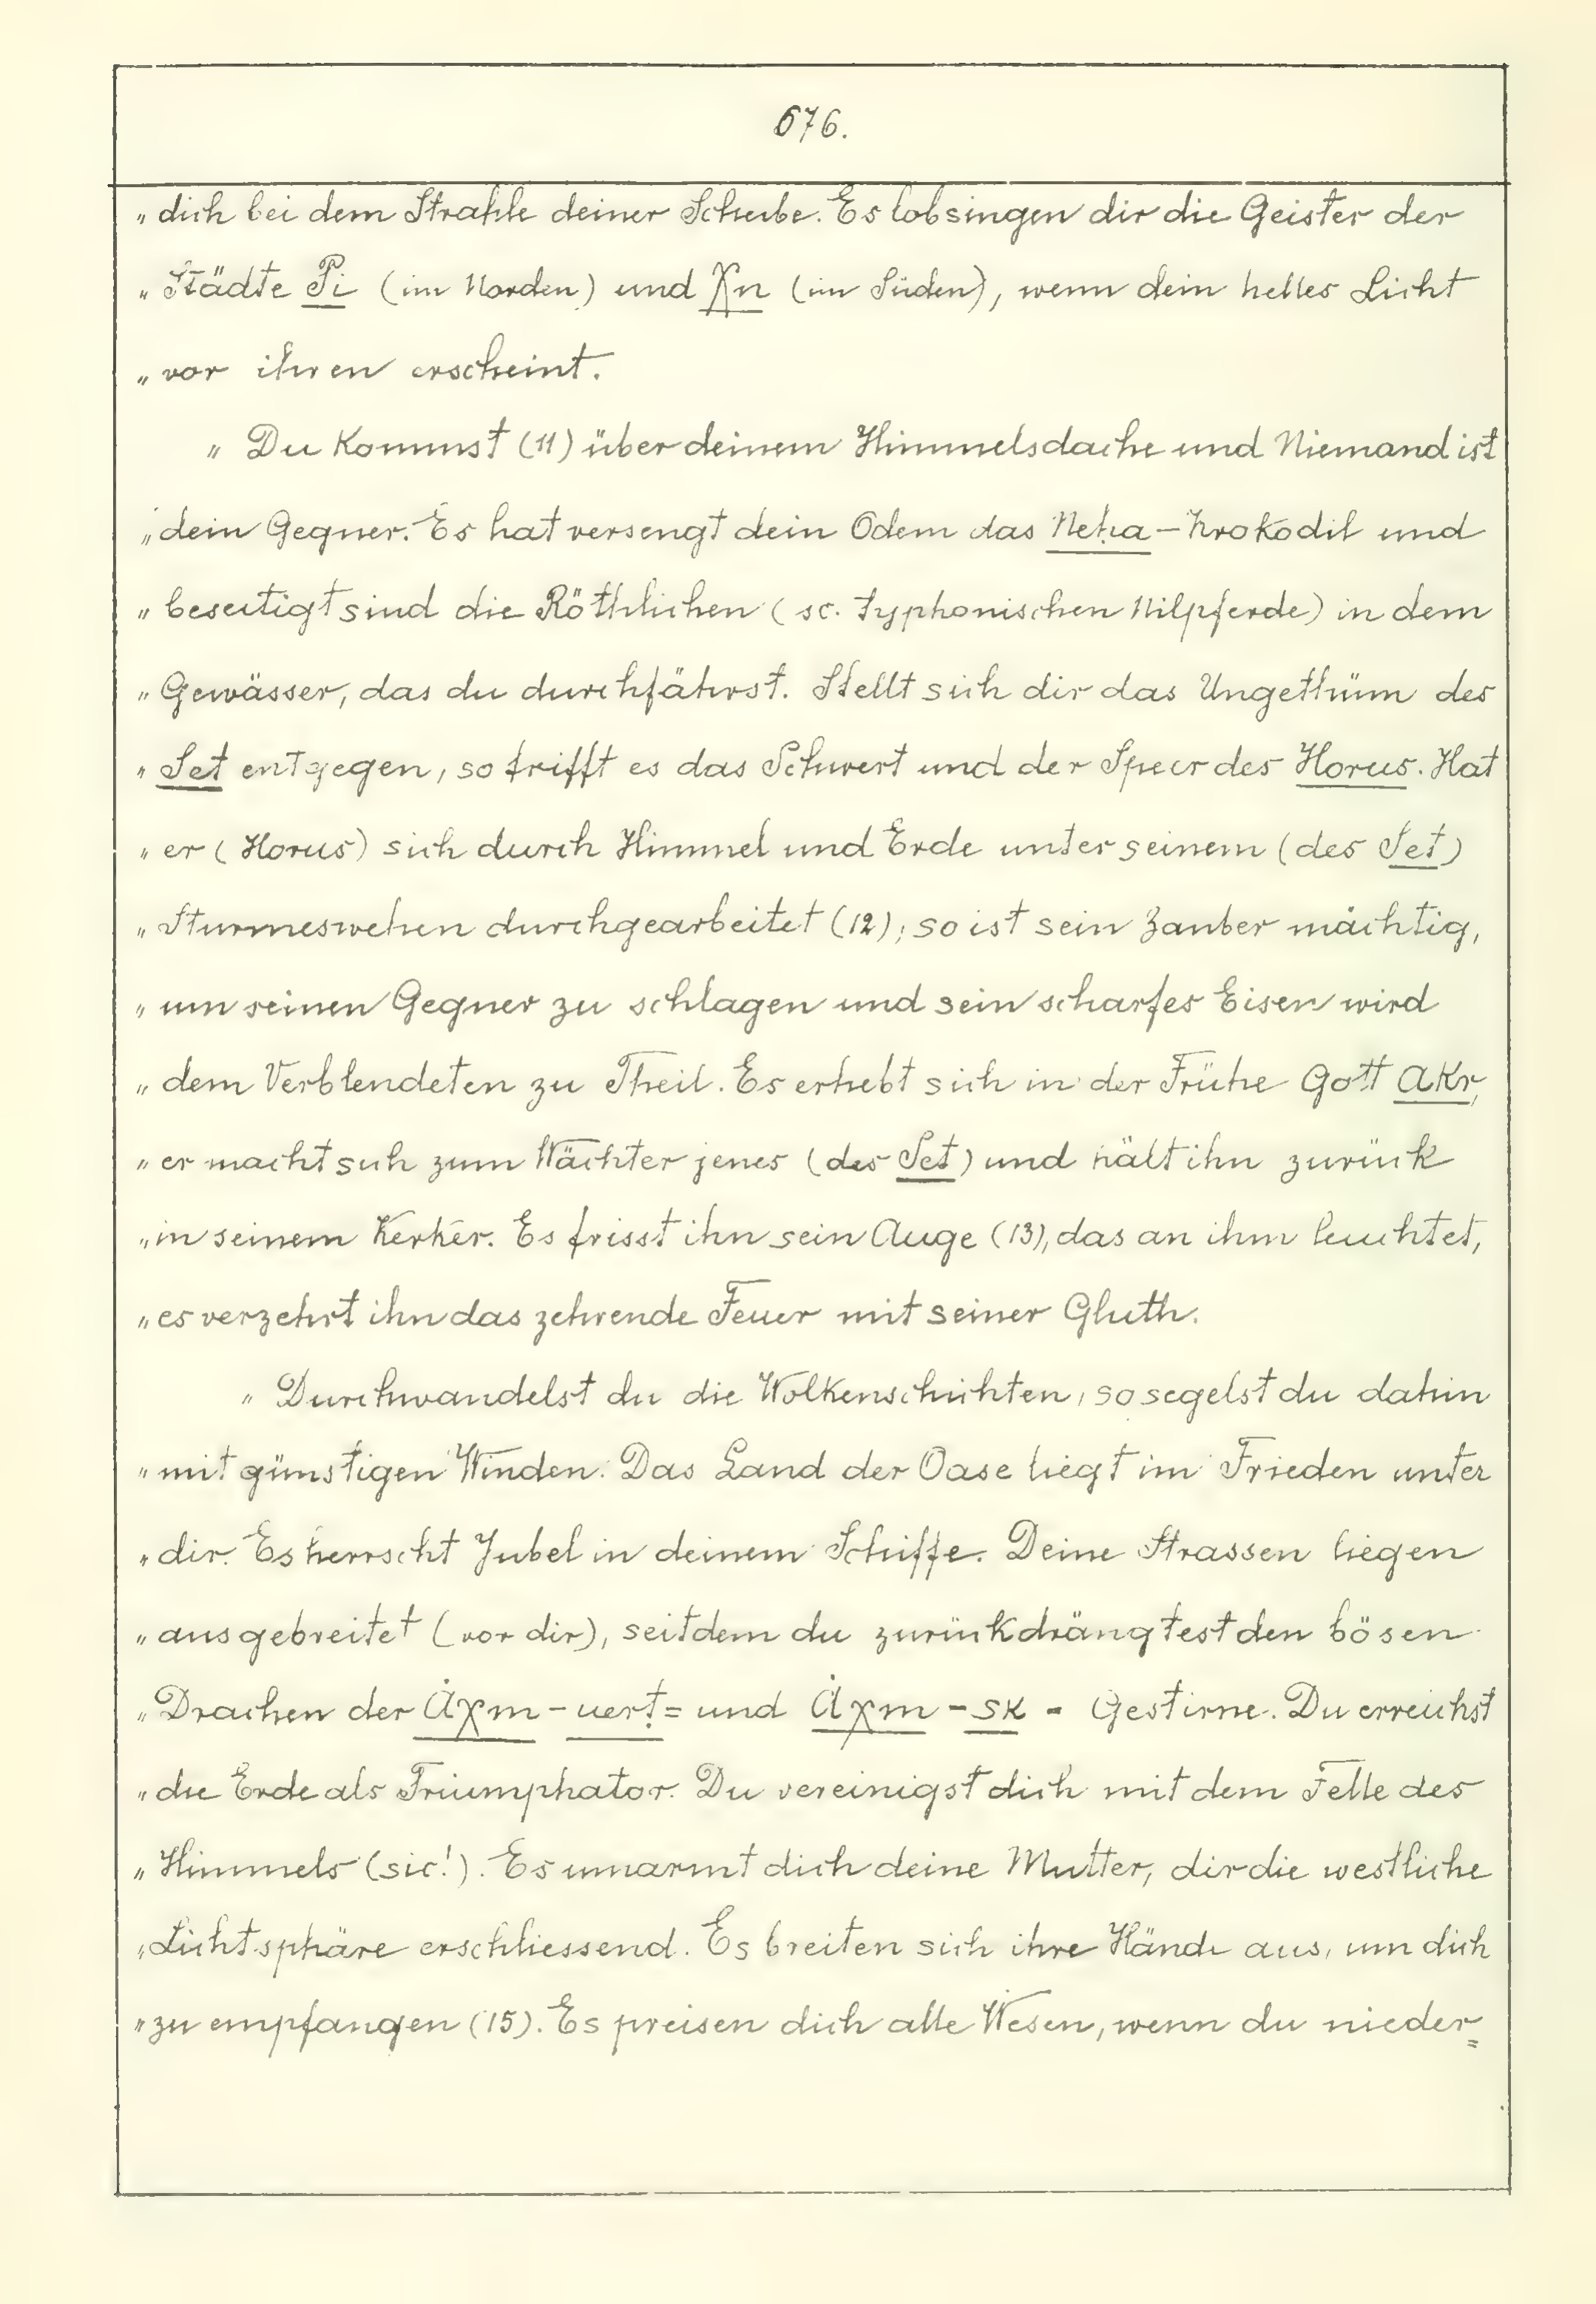 676.
„dich bei dem Strahle deiner Scheibe. Es lobsingen dir die Geister der
„Städte Pi (im Norden) und Xn (im Süden), wenn dein helles Licht
„vor ihnen erscheint.
„Du kommst (11) über deinem Himmelsdache und Niemand ist
„dein Gegner. Es hat versengt dein Odem das Neḥa-Krokodil und
„beseitigt sind die Röthlichen (sc. typhonischen Nilpferde) in dem
„Gewässer, das du durchfährst. Stellt sich dir das Ungethüm des
„Set entgegen, so trifft es das Schwert und der Speer des Horus. Hat
„er (Horus) sich durch Himmel und Erde unter seinem (des Set)
„Sturmeswehen durchgearbeitet (12); so ist sein Zauber mächtig,
„um seinen Gegner zu schlagen und sein scharfes Eisen wird
„dem Verblendeten zu Theil. Es erhebt sich in der Frühe Gott Akr,
„er macht sich zum Wächter jenes (des Set) und hält ihn zurück
„in seinem Kerker. Es frisst ihn sein Auge (13), das an ihm leuchtet,
„es verzehrt ihn das zehrende Feuer mit seiner Gluth.
„Durchwandelst du die Wolkenschichten, so segelst du dahin
„mit günstigen Winden. Das Land der Oase liegt im Frieden unter
„dir. Es herrscht Jubel in deinem Schiffe. Deine Strassen liegen
„ausgebreitet (vor dir), seitdem du zurückdrängtest den bösen
„Drachen der Ȧχm-uerṭ= und Ȧχm-sk- Gestirne. Du erreichst
„die Erde als Triumphator. Du vereinigst dich mit dem Felle des
„Himmels (sic!). Es umarmt dich deine Mutter, dir die westliche
„Lichtsphäre erschliessend. Es breiten sich ihre Hände aus, um dich
„zu empfangen (15). Es preisen dich alle Wesen, wenn du nieder=